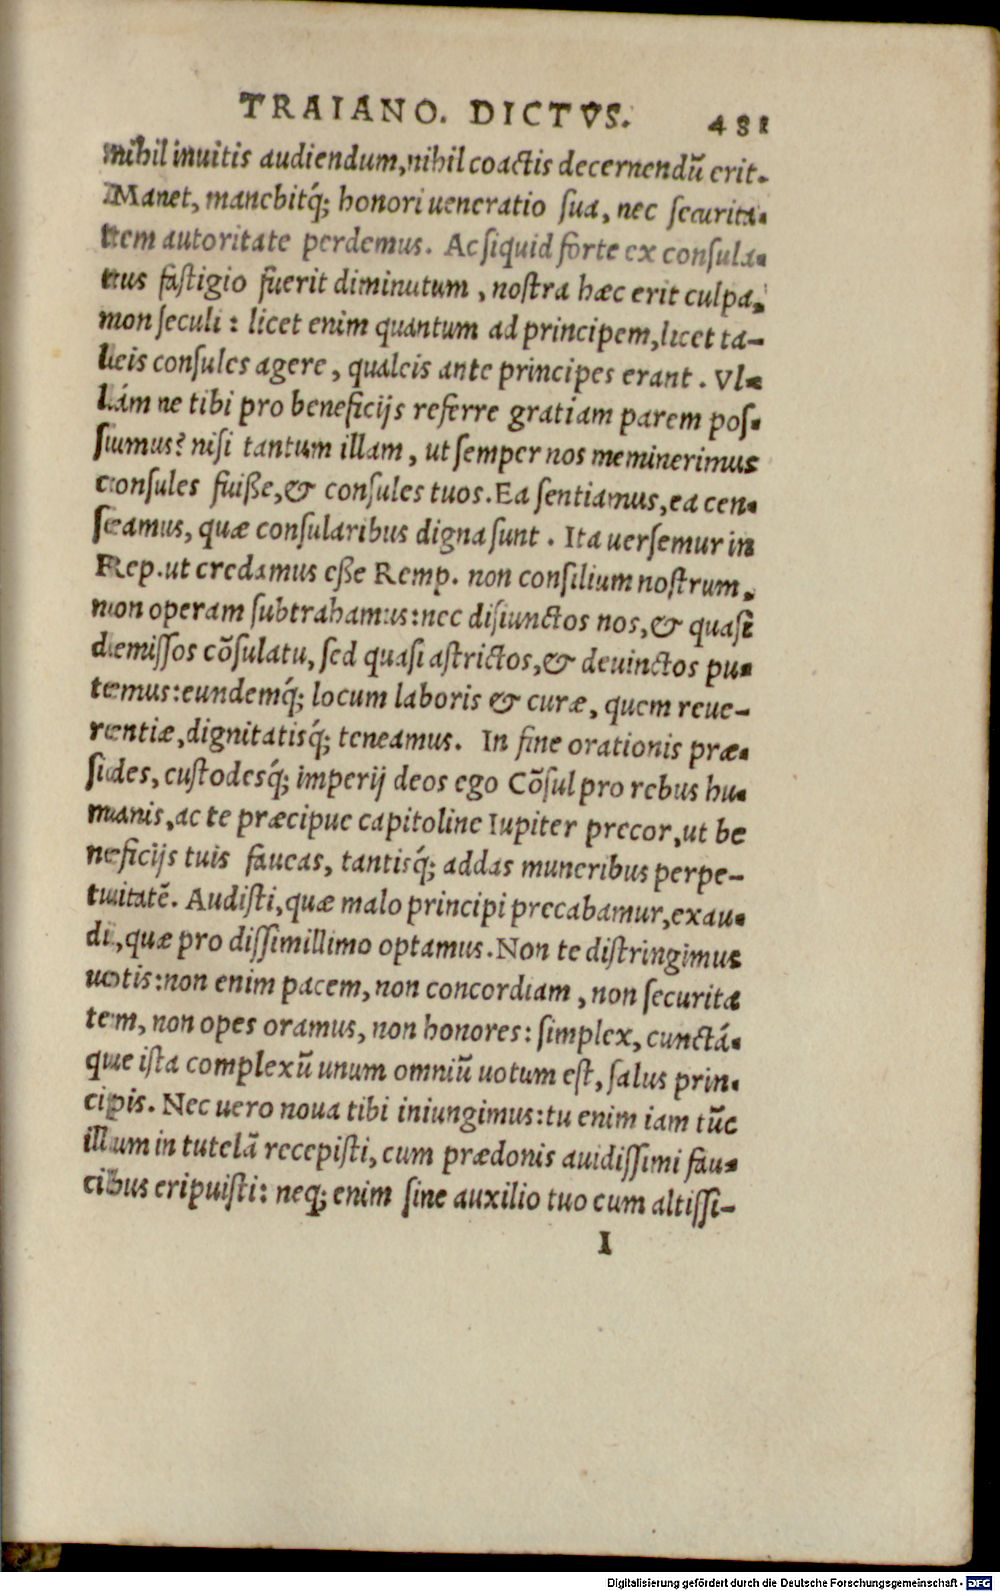 TRAIANO. DICTVS. 481
nihil inuitis audiendum, nihil coactis decernendũ erit.
Manet, manebitq́; honori ueneratio sua, nec securita-
tem autoritate perdemus. Ac siquid forte ex consula-
tus fastigio fuerit diminutum, nostra hæc erit culpa,
non seculi: licet enim quantum ad principem, licet ta-
leis consules agere, qualeis ante principes erant. Vl-
lám ne tibi pro beneficijs referre gratiam parem pos-
sumus? nisi tantum illam, ut semper nos meminerimus
consules fuiße, & consules tuos. Ea sentiamus, ea cen-
seamus, quæ consularibus digna sunt. Ita uersemur in
Rep. ut credamus eße Remp. non consilium nostrum,
non operam subtrahamus: nec disiunctos nos, & quasi
demissos cõsulatu, sed quasi astrictos, & deuinctos pu-
temus: eundemq́; locum laboris & curæ, quem reue-
rentiæ, dignitatisq́; teneamus. In fine orationis præ-
sides, custodesq́; imperij deos ego Cõsul pro rebus hu-
manis, ac te præcipue capitoline Iupiter precor, ut be
neficijs tuis faueas, tantisq́; addas muneribus perpe-
tuitatẽ. Audisti, quæ malo principi precabamur, exau-
di, quæ pro dissimillimo optamus. Non te distringimus
uotis: non enim pacem, non concordiam, non securita
tem, non opes oramus, non honores: simplex, cunctá-
que ista complexũ unum omniũ uotum est, salus prin-
cipis. Nec uero noua tibi iniungimus: tu enim iam tũc
illum in tutelã recepisti, cum prædonis auidissimi fau-
cibus eripuisti: neq; enim sine auxilio tuo cum altissi-
I
Digitalisierung gefördert durch die Deutsche Forschungsgemeinschaft - DFG